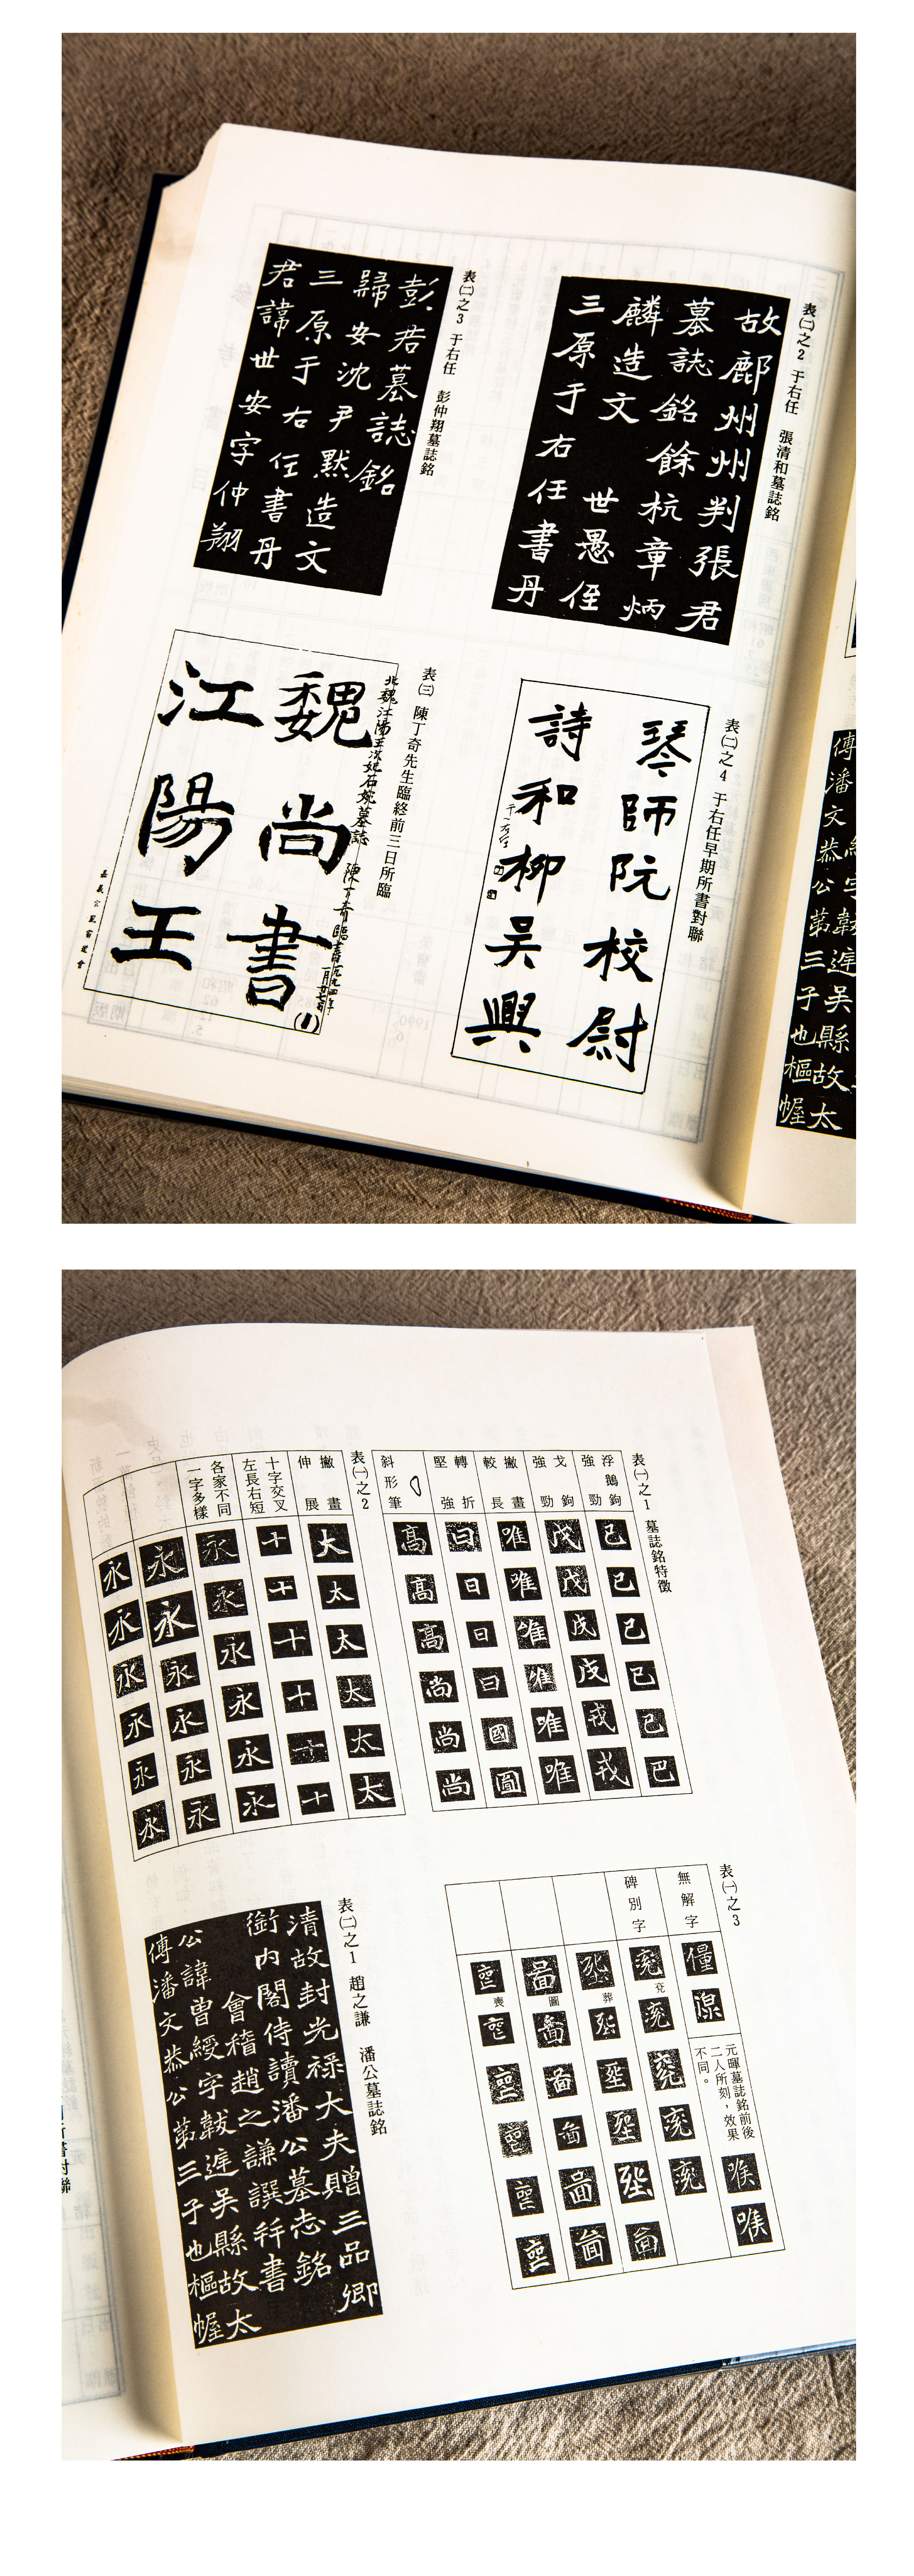 表㈡之2 于右任 張清和墓誌銘
故鄜州州判張君
墓誌銘餘杭章炳
麟造文 世愚侄
三原于右任書丹
表㈡之3 于右任 彭仲翔墓誌銘
彭君墓誌銘
歸安沈尹默造文
三原于右任書丹
君諱世安字仲翔
表㈡之4 于右任早期所書對聯
琴師阮校尉
詩和柳吳興
表㈢ 陳丁奇先生臨終前三日所臨
北魏江陽王次妃石婉墓誌 陳丁奇臨書
魏尚書
江陽王
(1)
傳潘文恭公第三子也樞幄
字韍遅吳縣故太
表㈠之1 墓誌銘特徵
浮鵝鉤強勁
戈鉤強勁
撇畫較長
轉折堅強
斜形筆
己己己己己巴
戊戊戊戊戎戎
唯唯唯唯唯唯
日日日日國圖
高高高尚尚尚
表㈠之2
撇畫伸展
十字交叉左長右短
各家不同一字多樣
大太太太太太
十十十十十十
永永永永永永
永永永永永永
永永永永永永
表㈠之3
無解字
碑別字
元暉墓誌銘前後
二人所刻，效果
不同。
喉喉
兗
葬
圖
喪
表㈡之1 趙之謙 潘公墓誌銘
清故封光祿大夫贈三品卿
銜內閣侍讀潘公墓志銘
會稽趙之謙譔并書
公諱曾綬字韍遅吳縣故太
傅潘文恭公第三子也樞幄